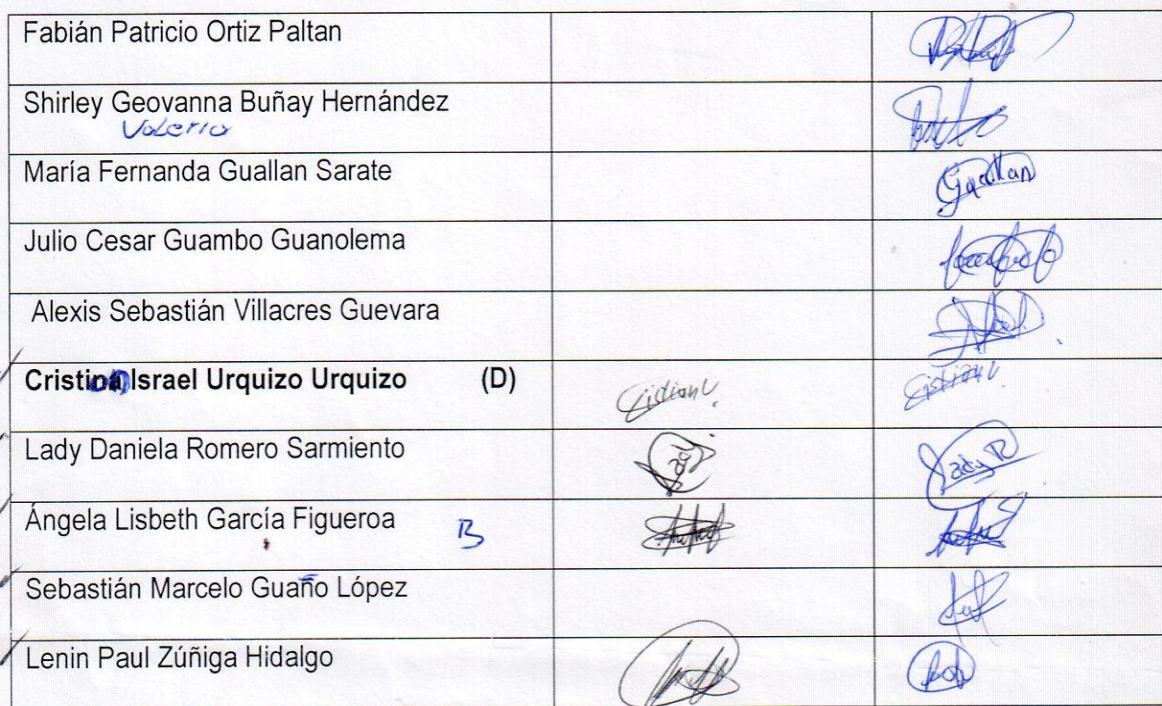 Fabián Patricio Ortiz Paltan
Shirley Geovanna Buñay Hernández
Valeria
María Fernanda Guallan Sarate
Guallan
Julio Cesar Guambo Guanolema
Alexis Sebastián Villacres Guevara
Israel Urquizo Urquizo (D)
Lady Daniela Romero Sarmiento
Lady R
Ángela Lisbeth García Figueroa B
Sebastián Marcelo Guaño López
Lenin Paul Zúñiga Hidalgo